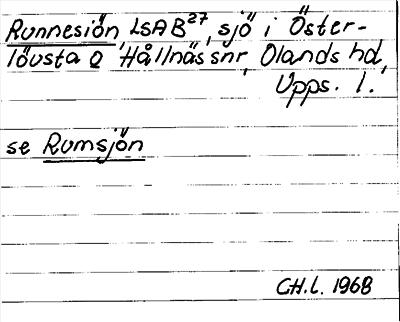 Runnesiön LSAB27, sjö i Öster-
lövsta o Hållnäs snr, Olands hd,
Upps. l.
se Rumsjön
CH.L. 1968